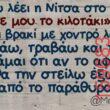 ι λέει η Νίτσα στο
ε μου το κιλοτάκι»
βρακί με χοντρό
άω, τραβάω και
άμαι ότι αν το αφ
α το στείλω έξ
από το παράθυ